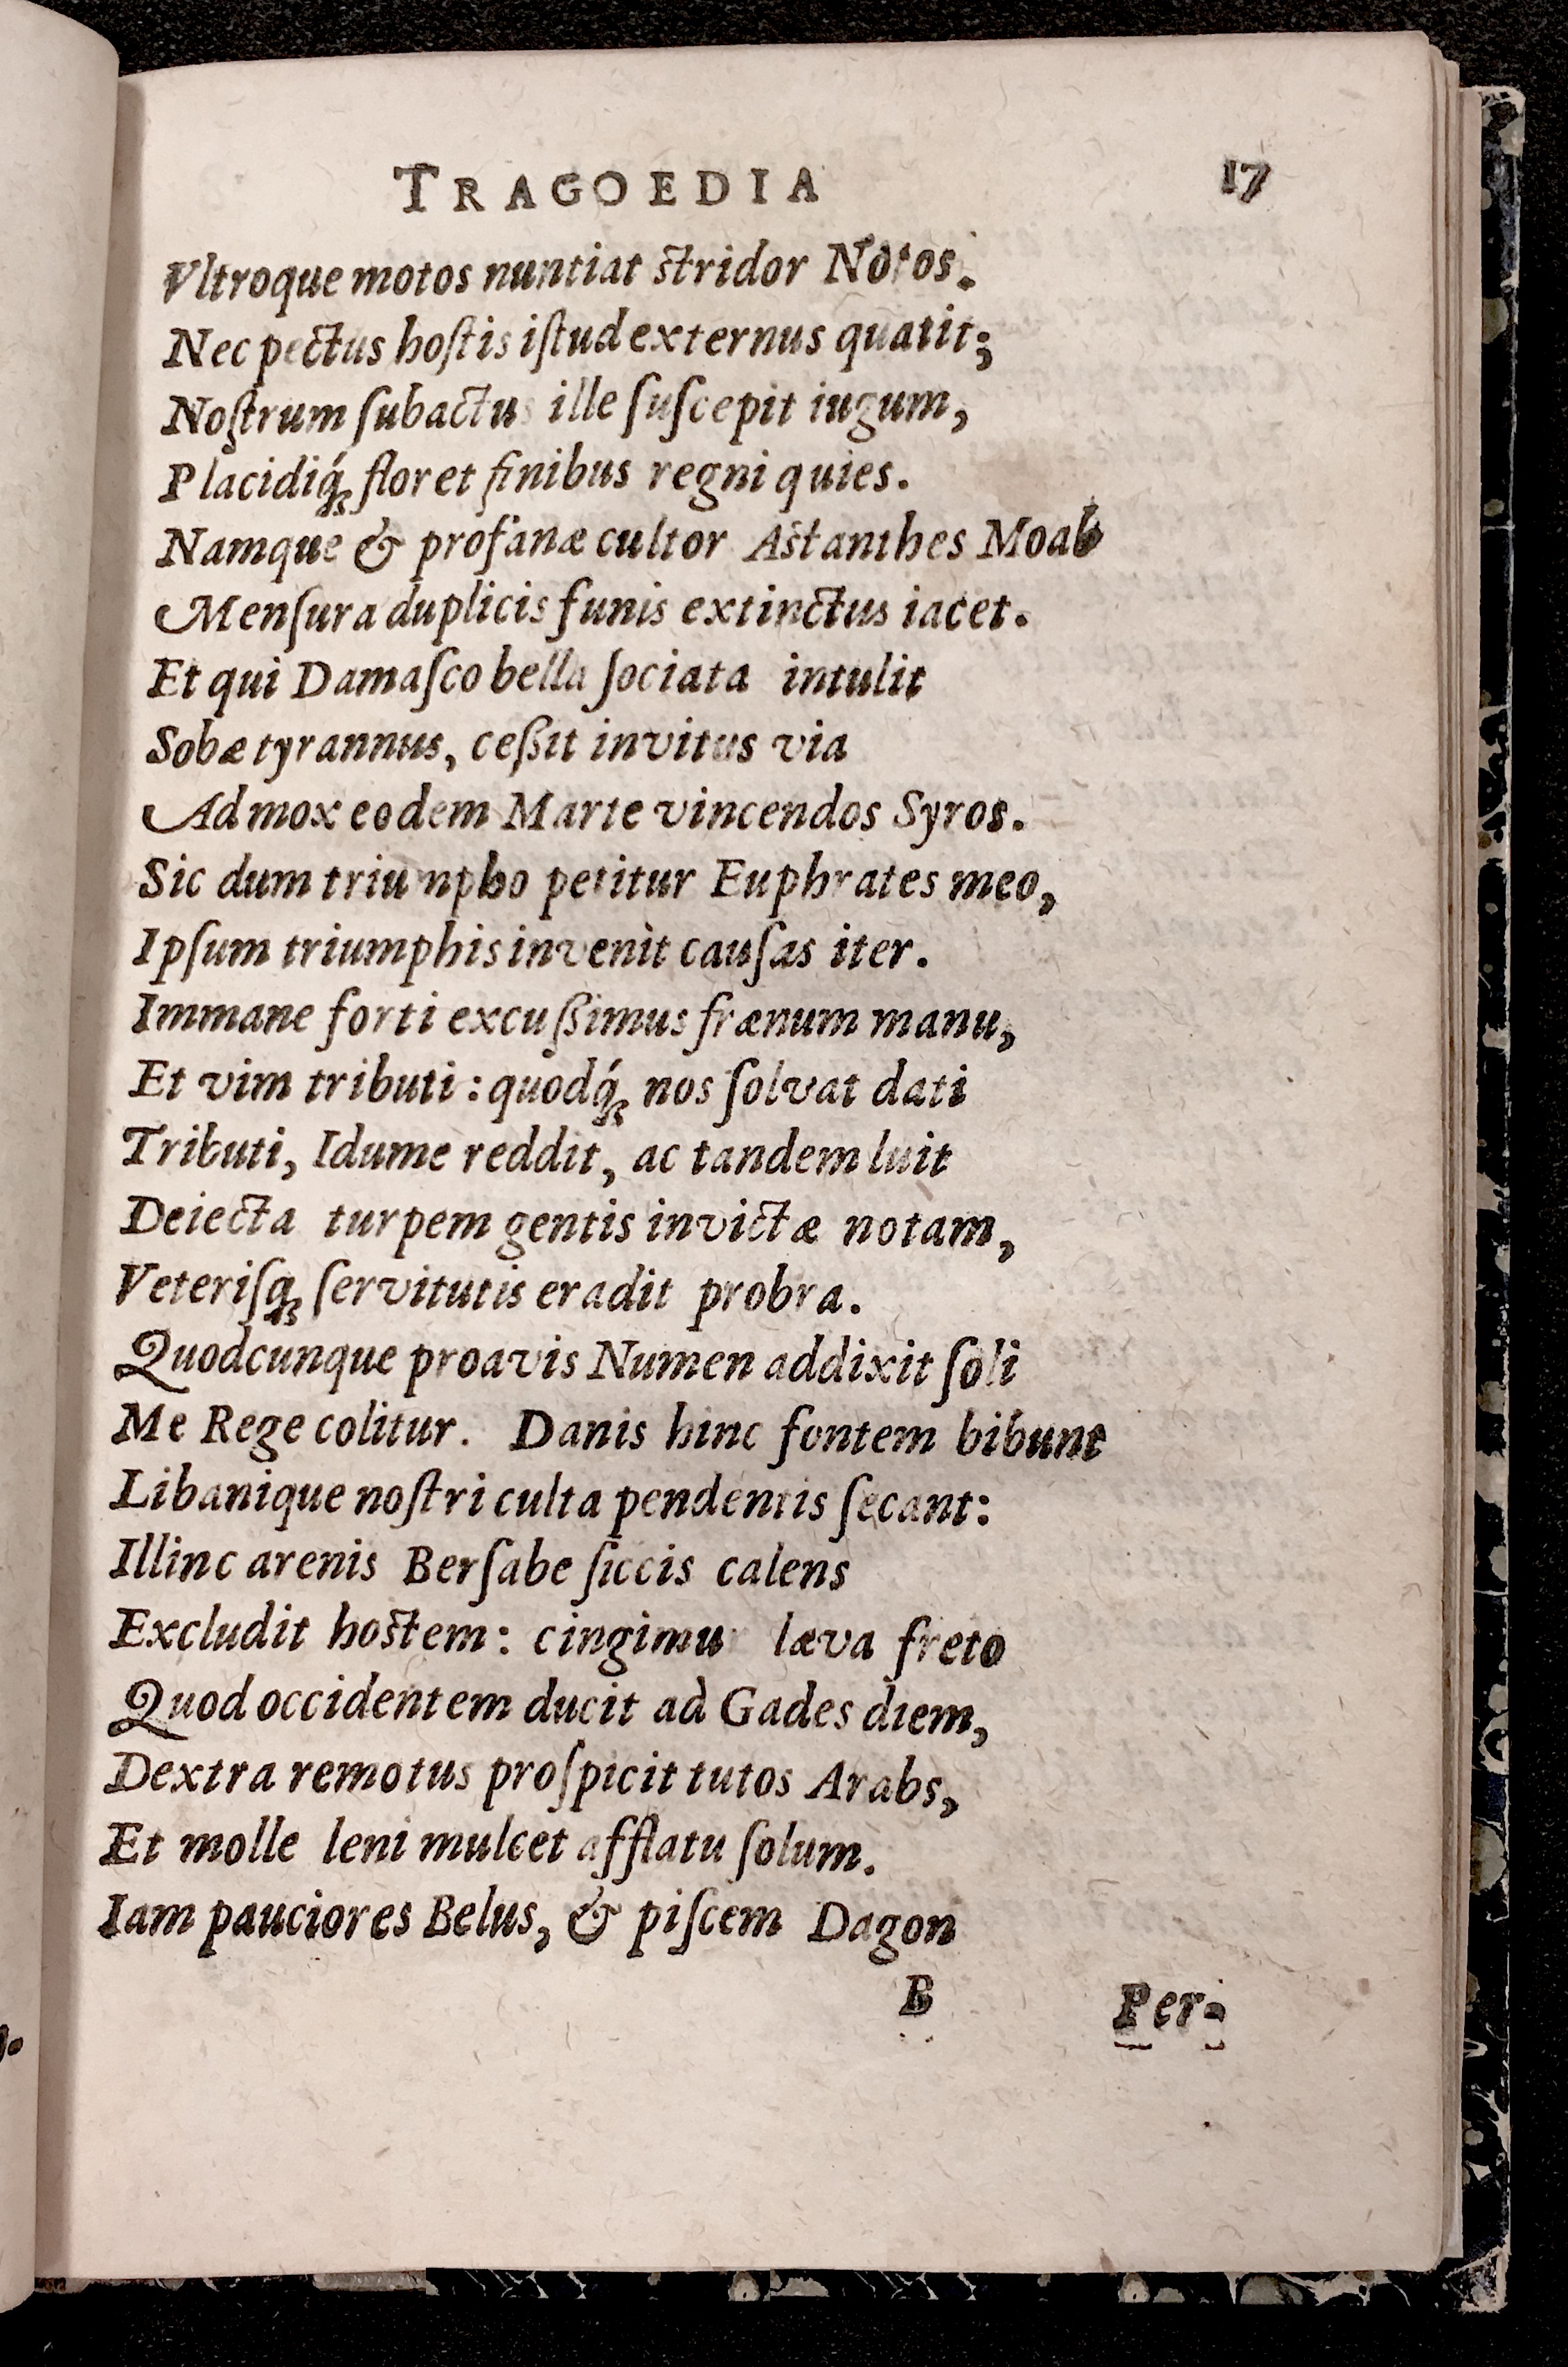 TRAGOEDIA 17
Vltroque motos nuntiat stridor Notos.
Nec pectus hoſtis iſtud externus quatit;
Noſtrum ſubactus ille ſuſcepit iugum,
Placidiq́; floret finibus regni quies.
Namque & profanæ cultor Astanthes Moab
Menſura duplicis funis extinctus iacet.
Et qui Damaſco bella ſociata intulit
Sobæ tyrannus, ceßit invitus via
Ad mox eodem Marte vincendos Syros.
Sic dum triumpho petitur Euphrates meo,
Ipſum triumphis invenit cauſas iter.
Immane forti excußimus frænum manu,
Et vim tributi: quodq́; nos ſolvat dati
Tributi, Idume reddit, ac tandem luit
Deiecta turpem gentis invictæ notam,
Veteriſq; ſervitutis eradit probra.
Quodcunque proavis Numen addixit ſoli
Me Rege colitur. Danis hinc fontem bibunt
Libanique noſtri culta pendentis ſecant:
Illinc arenis Berſabe ſiccis calens
Excludit hostem: cingimur læva freto
Quod occidentem ducit ad Gades diem,
Dextra remotus proſpicit tutos Arabs,
Et molle leni mulcet afflatu ſolum.
Iam pauciores Belus, & piſcem Dagon
B Per-